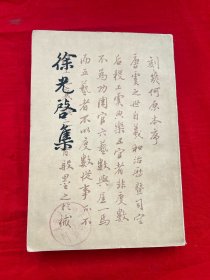 刻幾何原本序
唐虞之世自羲和治曆暨司空
后稷工虞典樂五官者非度數
不為功周官六藝數與居一焉
而五藝者不以度數從事亦不
徐光啓集
般墨之於械